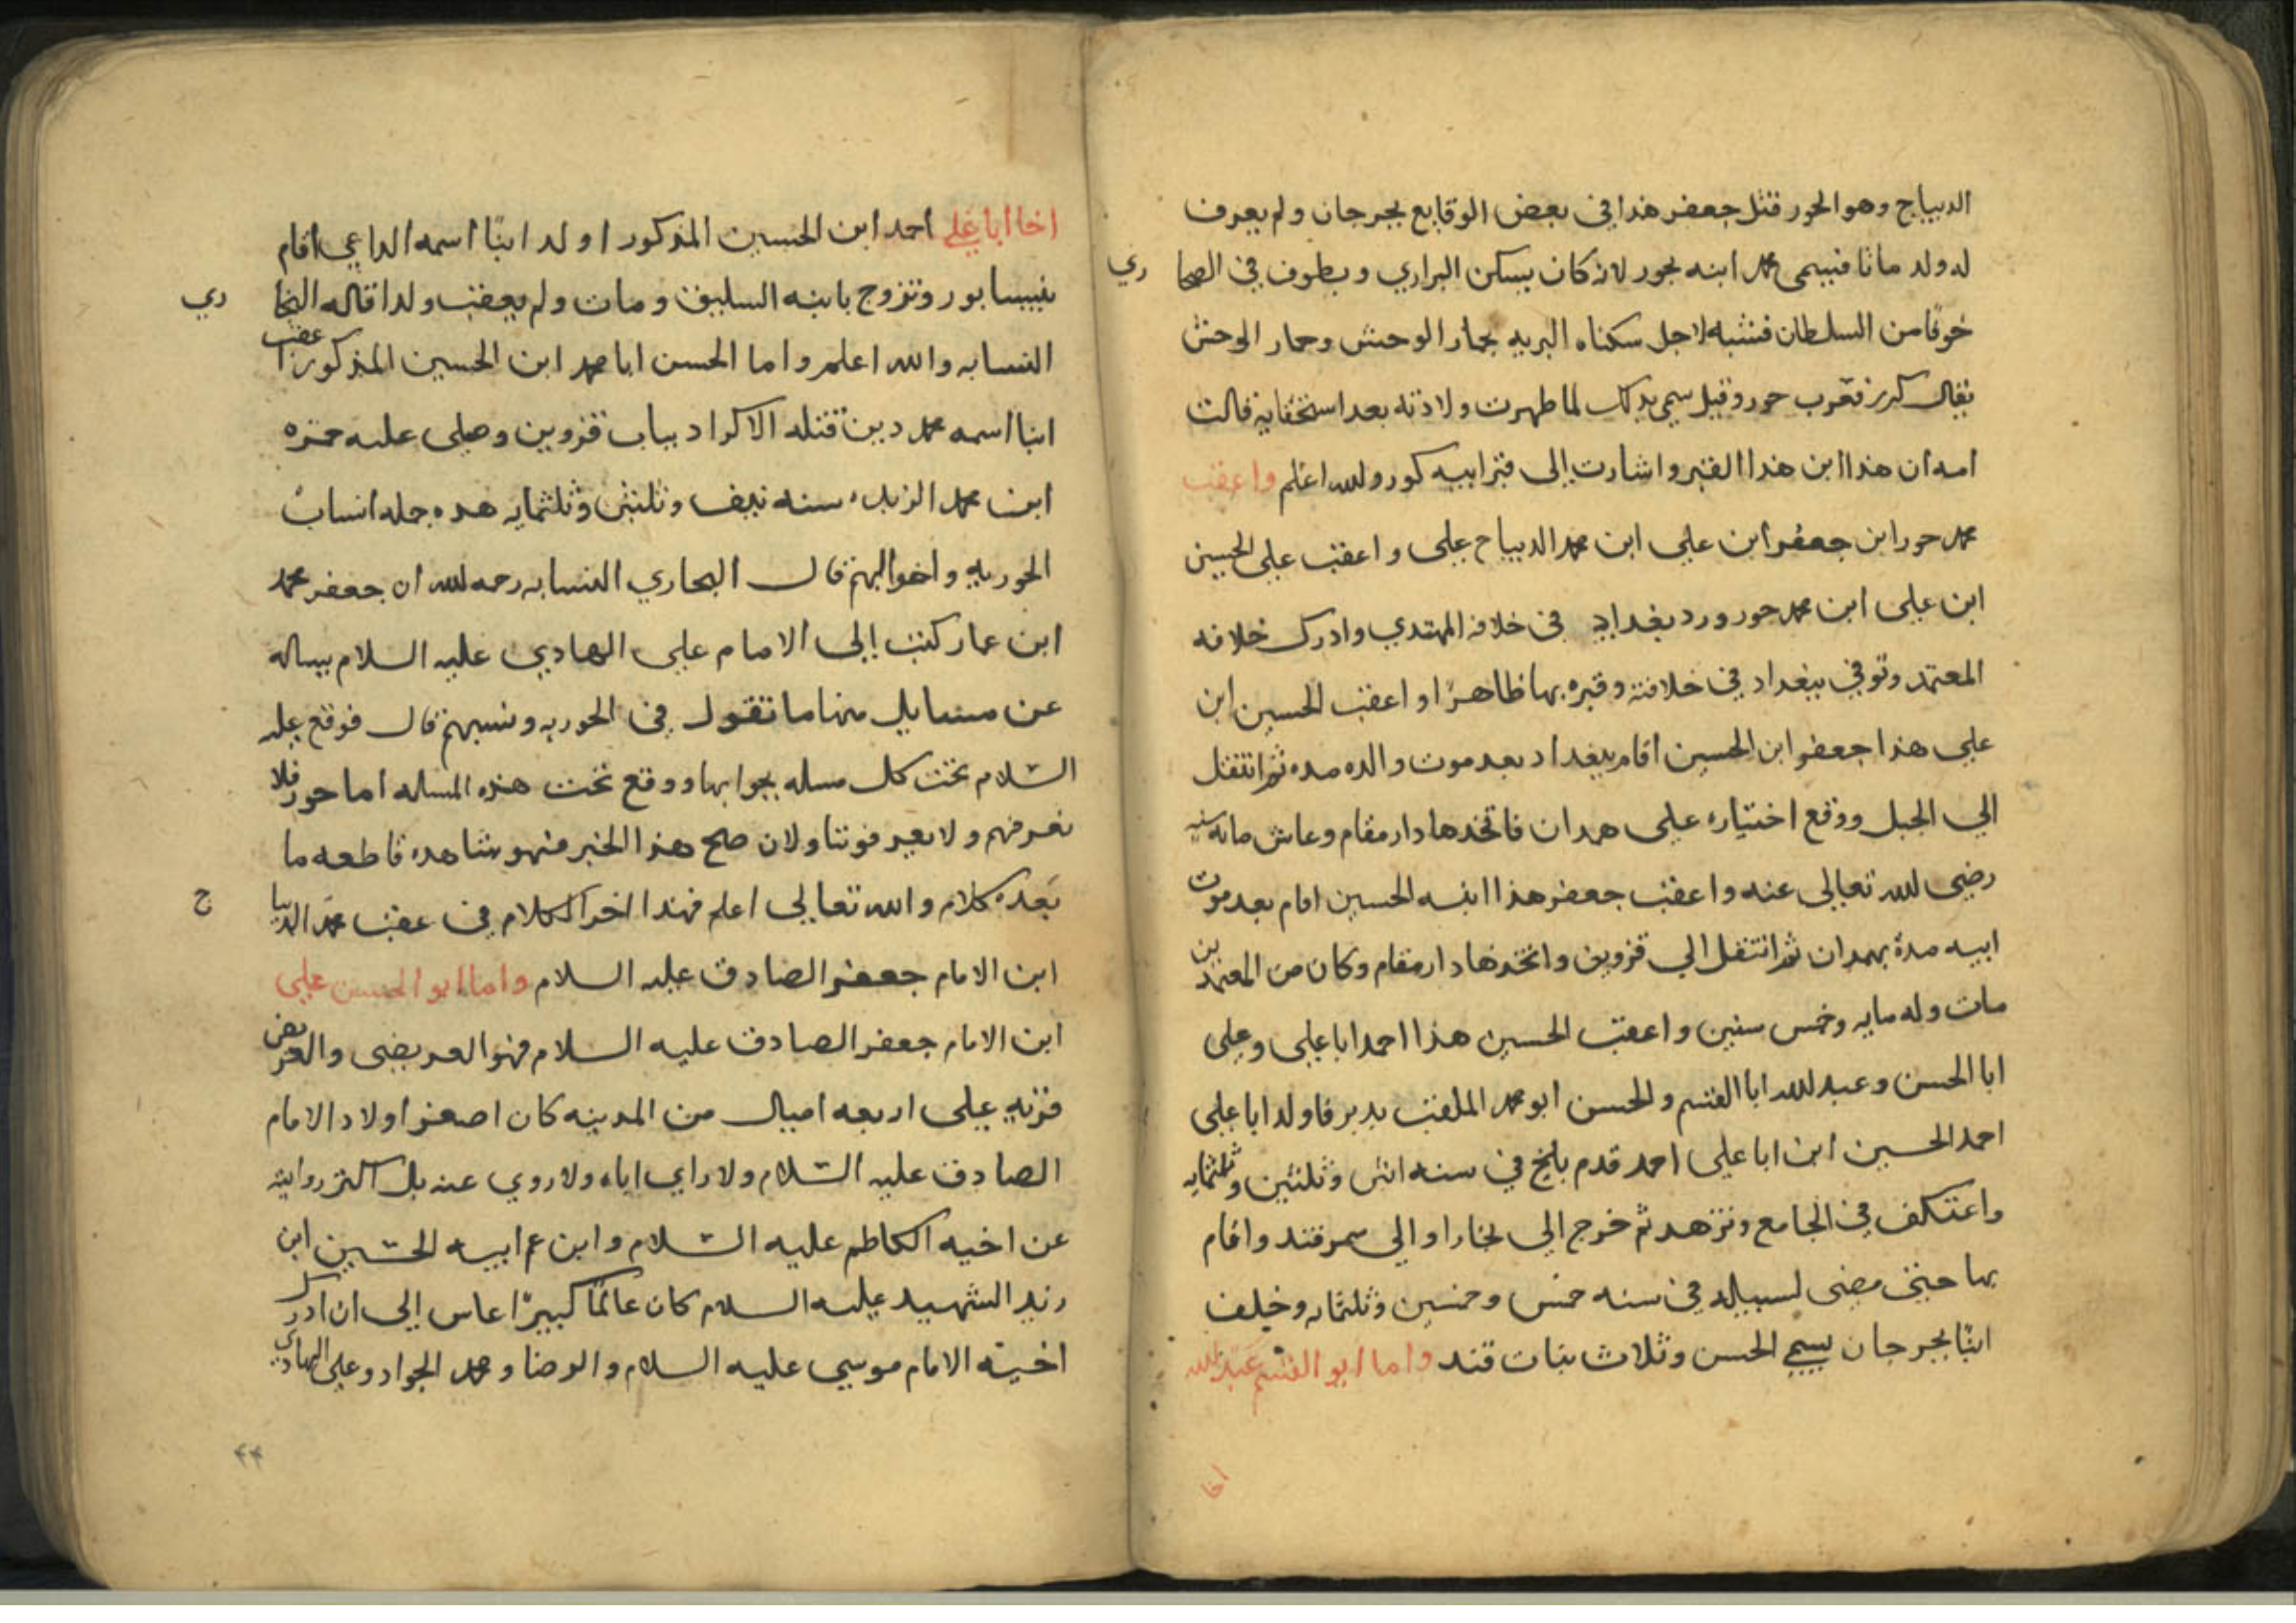 الديباج وهو الحور قتل جعفر هذا في بعض الوقايع بجرجان ولم يعرف
له ولد ماتا فيسمى محمد ابنه بحور لانه كان يسكن البراري ويطوف في الصحا ري
خوفا من السلطان فشبه لاجل سكناه البريه بحمار الوحش وحمار الوحش
يقال كور فعرب حور وقيل سمي بذلك لما ظهرت ولادته بعد استخفايه قالت
امه ان هذا ابن هذا القبر واشارت الى قبر ابيه كور ولله اعلم واعقب
محمد حور ابن جعفر ابن علي ابن محمد الديباج علي واعقب علي الحسين
ابن علي ابن محمد حور ورد بغداد في خلافه المهتدي وادرك خلافه
المعتمد وتوفي ببغداد في خلافته وقبره بها ظاهرًا واعقب الحسين ابن
علي هذا جعفر ابن الحسين اقام ببغداد بعد موت والده مده ثم انتقل
الي الجبل ووقع اختياره علي همدان فاتخذها دار مقام وعاش مايه سنه
رضي لله تعالى عنه واعقب جعفر هذا ابنه الحسين اقام بعد موت
ابيه مدة بهمدان ثم انتقل الي قزوين واتخذها دار مقام وكان من المعمر ين
مات وله مايه وخمس سنين واعقب الحسين هذا احمد ابا علي وعلي
ابا الحسن وعبد لله ابا القسم والحسن ابو محمد الملقب فاولد ابا علي
احمد الحسين ابن ابا علي احمد قدم بلخ في سنه اثنى وثلثين وثلثمايه
واعتكف في الجامع وتزهد ثم خرج الي بخارا والي سمرقند واقام
بها حتى مضى لسبيله في سنه خمس وخمسين وثلثمايه وخلف
ابنًا بجرجان يسمي الحسن وثلاث بنات واما ابو القسم عبد لله
اخا
اخا ابا علي احمد ابن الحسين المذكور اولد ابنًا اسمه الداعي اقام
بنيسابور وتزوج بابنه ومات ولم يعقب ولدا قاله البخا ري
النسابه والله اعلم واما الحسن ابا محمد ابن الحسين المذكور اعقب
ابنا اسمه محمد قتله الاكراد بباب قزوين وصلى عليه حمزه
ابن محمد سنه نيف وثلثين وثلثمايه هذه جمله انساب
الحوريه واخوالهم قال البخاري النسابه رحمه لله ان جعفر محمد
ابن عمار كتب إلى الامام علي الهادي عليه السلام يساله
عن مسايل منها ما تقول في الحوريه ونسبهم قال فوقع عليه
السّلام تحت كل مسله بجوابها ووقع تحت هذه المساله اما حور فلا
نعرفهم ولا يعرفوننا ولان صح هذا الخبر فهو شاهده قاطعه ما
بعده كلام والله تعالي اعلم فهذا اخر الكلام في عقب محمد الديبا ج
ابن الامام جعفر الصادق عليه السلام واما ابو الحسن علي
ابن الامام جعفر الصادق عليه السلام فهو العريضي والعريض
قريه على اربعه اميال من المدينه كان اصغر اولاد الامام
الصادق عليه السّلام ولا راي اياه ولا روي عنه بل اكثر روايته
عن اخيه الكاظم عليه السّلام وابن عم ابيه الحسين ابن
زيد الشهيد عليه السلام كان عالمًا كبيرًا عاش إلى ان ادرك
اخيه الامام موسي عليه السلام والرضا ومحمد الجواد وعلي الهادي
۴۴